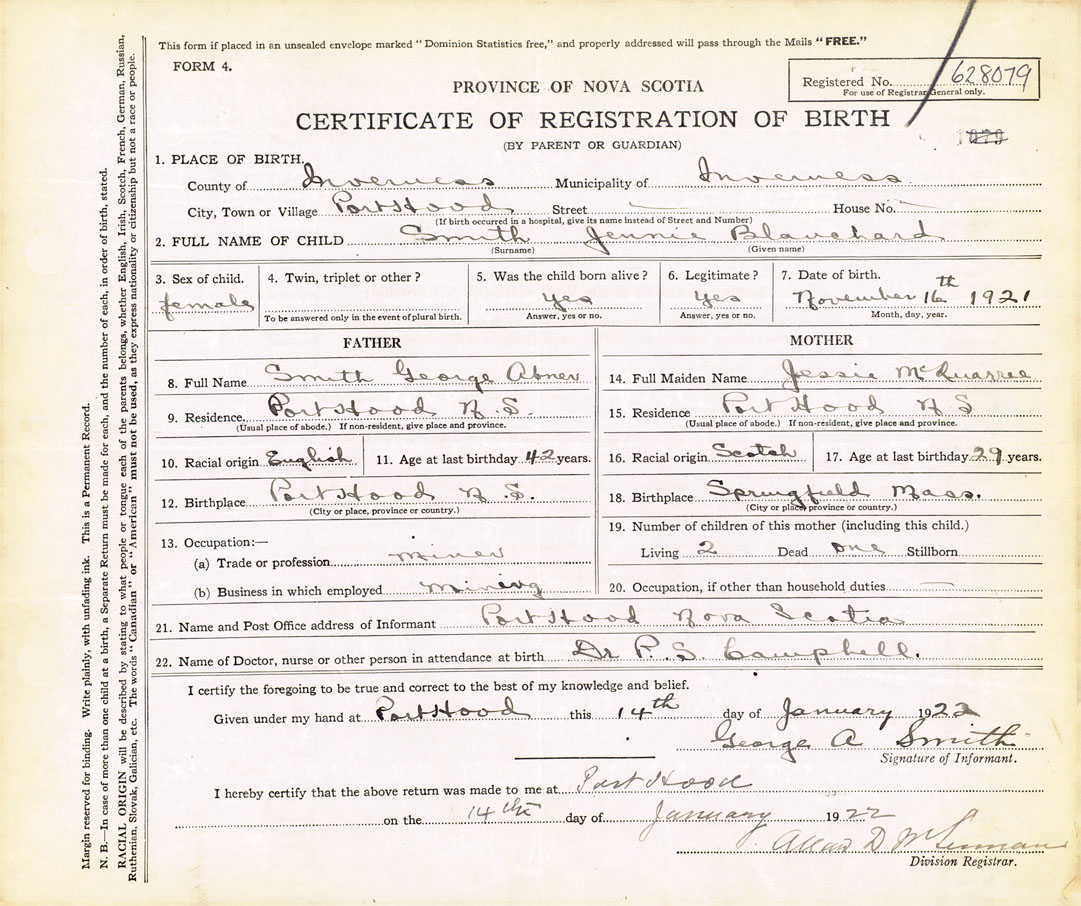 This form if placed in an unsealed envelope marked "Dominion Statistics free," and properly addressed will pass through the Mails "FREE."
FORM 4.
Registered No. 628079
For use of Registrar General only.
PROVINCE OF NOVA SCOTIA
CERTIFICATE OF REGISTRATION OF BIRTH
(BY PARENT OR GUARDIAN)
1. PLACE OF BIRTH.
County of Inverness Municipality of Inverness
City, Town or Village Port Hood Street — House No. —
(If birth occurred in a hospital, give its name instead of Street and Number)
2. FULL NAME OF CHILD Smith Jennie Blanchard
(Surname) (Given name)
3. Sex of child. 4. Twin, triplet or other? 5. Was the child born alive? 6. Legitimate? 7. Date of birth.
female yes yes November 16th 1921
To be answered only in the event of plural birth. Answer, yes or no. Answer, yes or no. Month, day, year.
FATHER MOTHER
8. Full Name Smith George Abner 14. Full Maiden Name Jessie McQuarree
9. Residence, Port Hood N.S. 15. Residence Port Hood N S
(Usual place of abode.) If non-resident, give place and province. (Usual place of abode.) If non-resident, give place and province.
10. Racial origin English 11. Age at last birthday 42 years. 16. Racial origin Scotch 17. Age at last birthday 29 years.
12. Birthplace Port Hood N.S. 18. Birthplace Springfield Mass.
(City or place, province or country.) (City or place, province or country.)
13. Occupation:— 19. Number of children of this mother (including this child.)
(a) Trade or profession miner Living 2 Dead one Stillborn
(b) Business in which employed mining 20. Occupation, if other than household duties —
21. Name and Post Office address of Informant Port Hood Nova Scotia
22. Name of Doctor, nurse or other person in attendance at birth Dr P. S. Campbell.
I certify the foregoing to be true and correct to the best of my knowledge and belief.
Given under my hand at Port Hood this 14th day of January 1922
George A Smith
Signature of Informant.
I hereby certify that the above return was made to me at Port Hood
on the 14th day of January 1922
D
Division Registrar.
Margin reserved for binding. Write plainly, with unfading ink. This is a Permanent Record.
N. B.—In case of more than one child at a birth, a Separate Return must be made for each, and the number of each, in order of birth, stated.
RACIAL ORIGIN will be described by stating to what people or tongue each of the parents belongs, whether English, Irish, Scotch, French, German, Russian,
Ruthenian, Slovak, Galician, etc. The words "Canadian" or "American" must not be used, as they express nationality or citizenship but not a race or people.